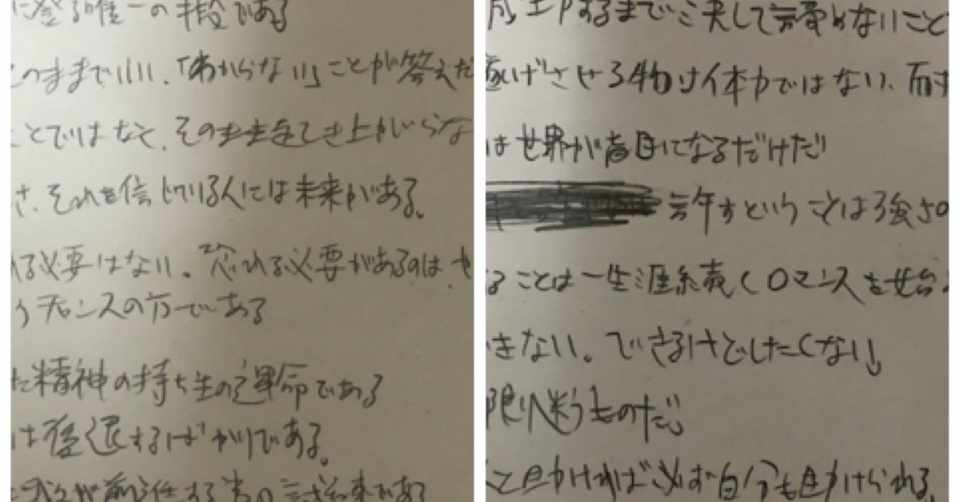 に登る唯一の手段である
このままでいい、「わからない」ことが答えだ
ことではなく、そのまま起き上がらな
さ、それを信じている人には未来がある。
れる必要はない。恐れる必要があるのは、せ
うチャンスの方である
た精神の持ち主の運命である
は後退するばかりである。
成功するまで決して諦めないこと
遂げさせる物は体力ではない、耐
は世界が盲目になるだけだ
許すということは強さの
ることは一生涯続くロマンスを始
きない。できるけどしたくない。
限り迷うものだ。
と助ければ必ず自分も助けられる